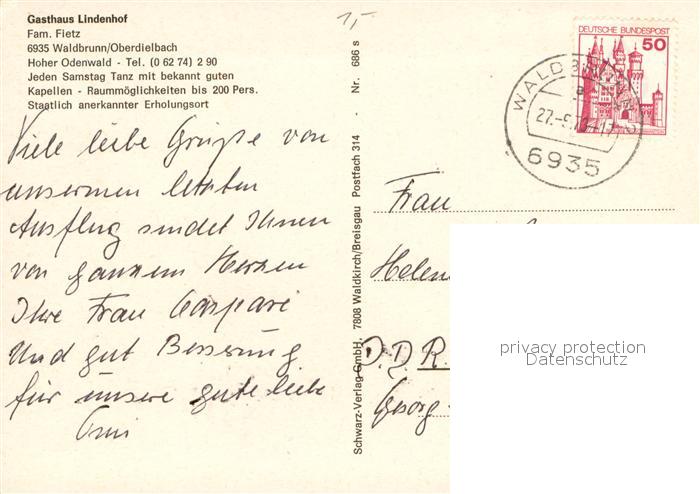 Gasthaus Lindenhof
Fam. Fietz
6935 Waldbrunn/Oberdielbach
Hoher Odenwald - Tel. (0 62 74) 2 90
Jeden Samstag Tanz mit bekannt guten
Kapellen - Raummöglichkeiten bis 200 Pers.
Staatlich anerkannter Erholungsort
1,-
Viele liebe Grüße von
unserem letzten
Ausflug sendet Ihnen
von ganzem Herzen
Ihre Frau Caspari
Und gut Besserung
für unsere gute liebe
Omi
Schwarz-Verlag GmbH. 7808 Waldkirch/Breisgau Postfach 314 - Nr. 686 s
DEUTSCHE BUNDESPOST
50
WALDBRUNN
a
27.-5.
6935
Frau
Helen
DDR.
Georg-
privacy protection
Datenschutz